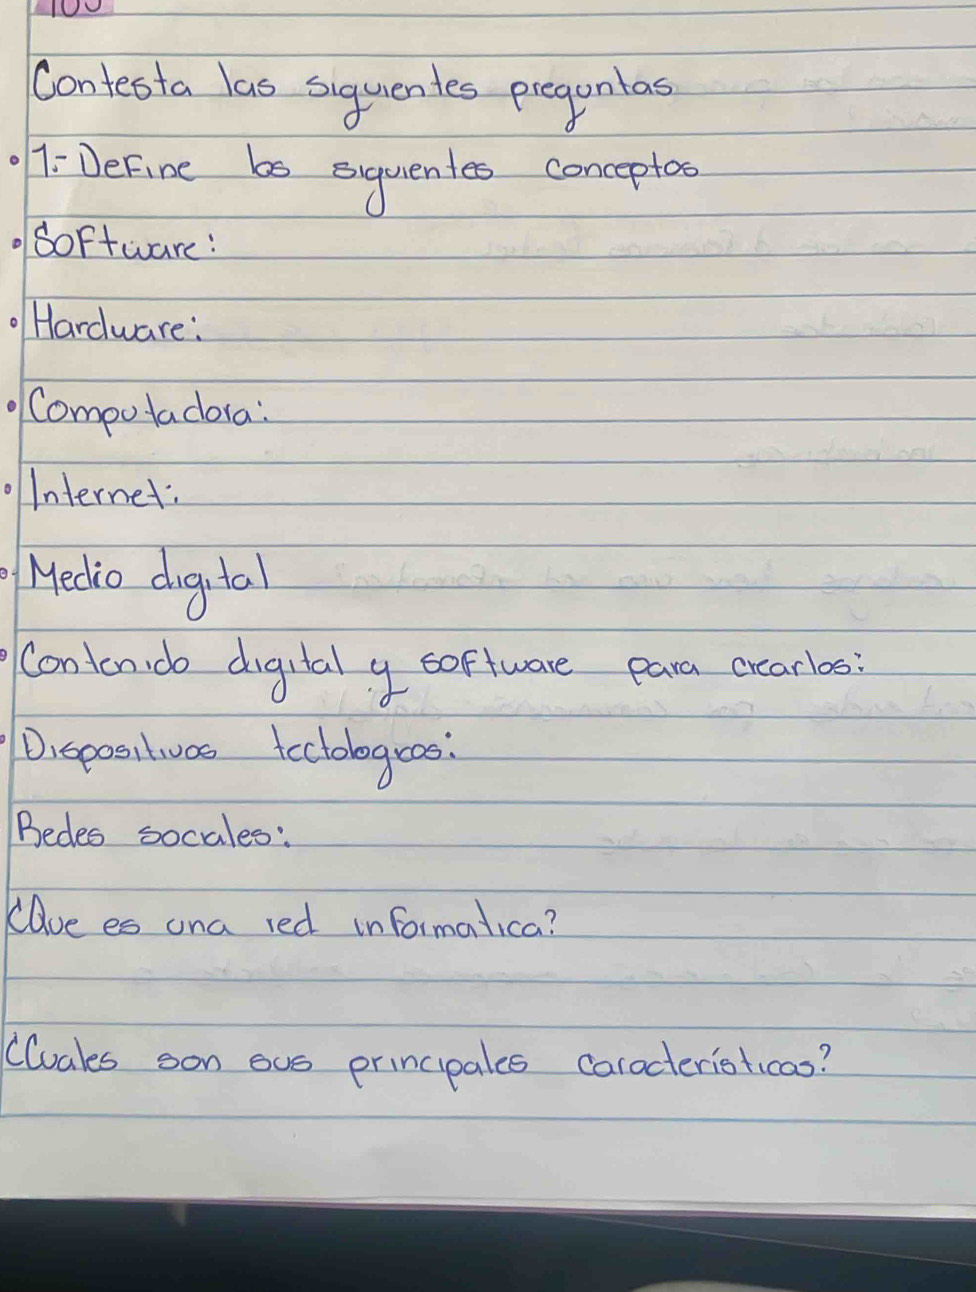 Contesta las siguientes preguntas
1.- Define los siguientes conceptos
Software:
Hardware:
Computadora:
Internet:
Medio digital
Contenido digital y software para crearlos:
Dispositivos tectologicos:
Redes sociales:
¿Que es una red informatica?
¿Cuales son sus principales características?